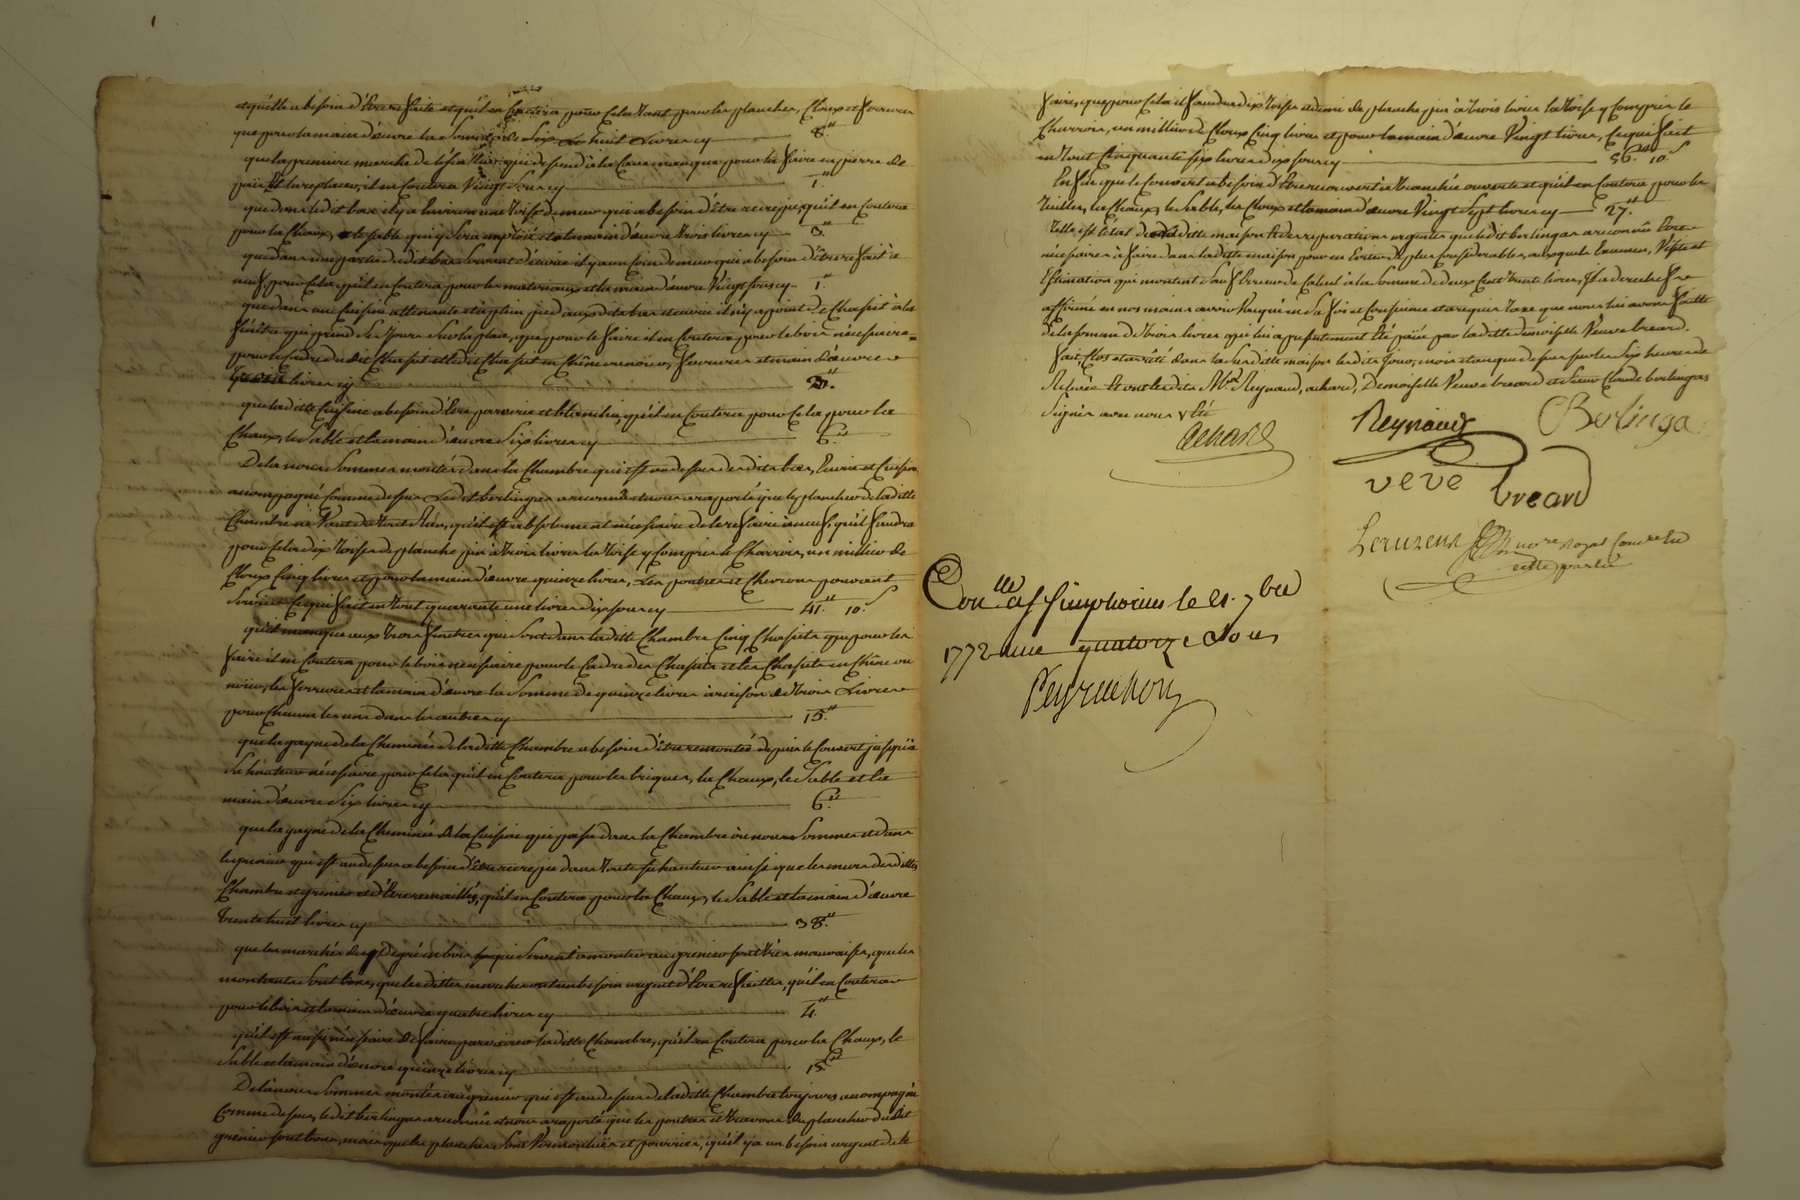 et qu'elle a besoin d'être refaite et qu'il en Coutera pour Cela tant pour les planches, Cloux et ferrures
que pour la main d'œuvre la Somme de huit Livres cy 8.ᵗᵗ
que la premiere marche de l'éscallier qui dessend à la Cave manque, pour la faire en pierre de
païs et la replacer, il en Coutera Vingt Sous cy 1.ᵗᵗ
que dans ledit bas il y a Environ une Toise de mur qui a besoin d'être recrepi, qu'il en Coutera
pour la Chaux, le sable qui y Sera emploïé et la main d'œuvre trois livres cy 3.ᵗᵗ
que dans une partie dudit bas Servant d'ecurie il y a un Coin de mur qui a besoin d'être refait à
neuf, pour Cela qu'il en Coutera pour les materiaux et la main d'œuvre Vingt sous cy 1.ᵗᵗ
que dans une Cuisine attenante et à plein pied aux dits bas et ecurie il n'y a point de Chassit à la
fenêtre qui prend Ses Jours Sur la place, que pour le faire il en Coutera pour le bois nécessaire
pour le Cadre dudit Chassit et ledit Chassit en Chêne ou noïer, ferrures et main d'œuvre
livres cy
que la ditte Cuisine a besoin d'être parroiée et blanchie, qu'il en Coutera pour Cela pour la
Chaux, le Sable et la main d'œuvre Six livres cy 6.ᵗᵗ
De là nous Sommes montés dans la Chambre qui est au dessus desdits bas, Ecurie et Cuisine,
accompagné Comme dessus Ledit berlingas a reconnû et nous a raporté que le plancher de la ditte
Chambre ne Vaut du tout Rien, qu'il est absolument nécessaire de le refaire à neuf, qu'il faudra
pour Cela dix toises de planche pin à trois livres la toise y Compris le Charroir, un millier de
Cloux Cinq livres et pour la main d'œuvre quinze livres, Les poutres et Chevrons pouvant
Servir Ce qui fait en tout quarante une livres dix sous cy 41.ᵗᵗ 10.ˢ
qu'il manque aux trois fenêtres qui Sont dans la ditte Chambre Cinq Chassits que pour les
faire il en Coutera pour le bois nécessaire pour le Cadre des Chassits et les Chassits en Chêne ou
noïer, les ferrures et la main d'œuvre la Somme de quinze livres à raison de trois Livres
pour Chacun les uns dans les autres cy 15.ᵗᵗ
que la gayne de la Cheminée de la ditte Chambre a besoin d'être remontée depuis le Couvert jusqu'à
Sa hauteur nécessaire pour Cela qu'il en Coutera pour les briques, la Chaux, le Sable et la
main d'œuvre Six livres cy 6.ᵗᵗ
que la gayne de la Cheminée de la Cuisine qui passe dans la Chambre où nous Sommes et dans
le grenier qui est au dessus a besoin d'être recrepie dans toute sa hauteur ainsi que les murs desdittes
Chambre et grenier et d'être remaillés, qu'il en Coutera pour la Chaux, le Sable et la main d'œuvre
trente huit livres cy 38.ᵗᵗ
que les marches du degré en bois qui Servent à monter au grenier sont très mauvaises, que les
montants Sont bons, que les dittes marches ont un besoin urgent d'être refaittes, qu'il en Coutera
pour le bois et la main d'œuvre quatre livres cy 4.ᵗᵗ
qu'il est aussi nécessaire de faire parroier la ditte Chambre, qu'il en Coutera pour la Chaux, le
Sable et la main d'œuvre quinze livres cy 15.ᵗᵗ
De là nous Sommes montés au grenier qui est au dessus de la ditte Chambre toujours accompagné
Comme dessus, ledit berlingas a reconnû et nous a raporté que les poutres et travons du plancher dudit
grenier sont bons, mais que les planches Sont Vermouluës et pourries, qu'il y a un besoin urgent de le
faire, que pour Cela il faudra dix toises et demi de planche pin à trois livres la toise y Compris le
Charroir, un millier de Cloux Cinq livres et pour la main d'œuvre Vingt livres, Ce qui fait
en tout Cinquante six livres dix sous cy 56.ᵗᵗ 10.ˢ
Enfin que le Couvert a besoin d'être recouvert à tranchée ouverte et qu'il en Coutera pour les
tuilles, la Chaux, le Sable, les Cloux et la main d'œuvre Vingt Sept livres cy 27.ᵗᵗ
Telle est l'état de la ditte maison et des reparations urgentes que ledit berlingas a reconnû être
nécessaires à faire dans la ditte maison pour en Eviter de plus Considerables, auxquels Examen, Visite et
Estimation qui montent Sauf Erreur de Calcul à la Somme de deux Cent trente livres, Il a derechef
affirmé en nos mains avoir Vaqué en Sa foi et Conscience et a requis taxe que nous lui avons faitte
de la somme de trois livres qui lui a presentement été païée par la ditte demoiselle Veuve breard.
fait, Clos et arrêté dans la Susditte maison ledit Jour, mois et an que dessus sur les Six heures de
Relevée Et ont lesdits Mʳˢ Reynaud, achard, Demoiselle Veuve breard et Sieur Claude berlingas
Signés avec nous
achard
Reynaud
C Berlinga
veve breard
Lauzens
royal Com.re en
cette partie
Con.lle a St Simphorien le 21. 7bre
1772 une quatorze sous
Peyrachon